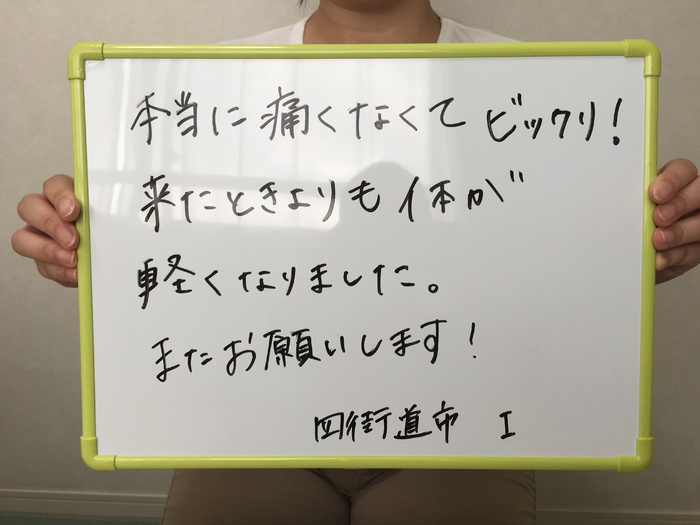 本当に痛くなくてビックリ!
来たときよりも体が
軽くなりました。
またお願いします!
四街道市 I